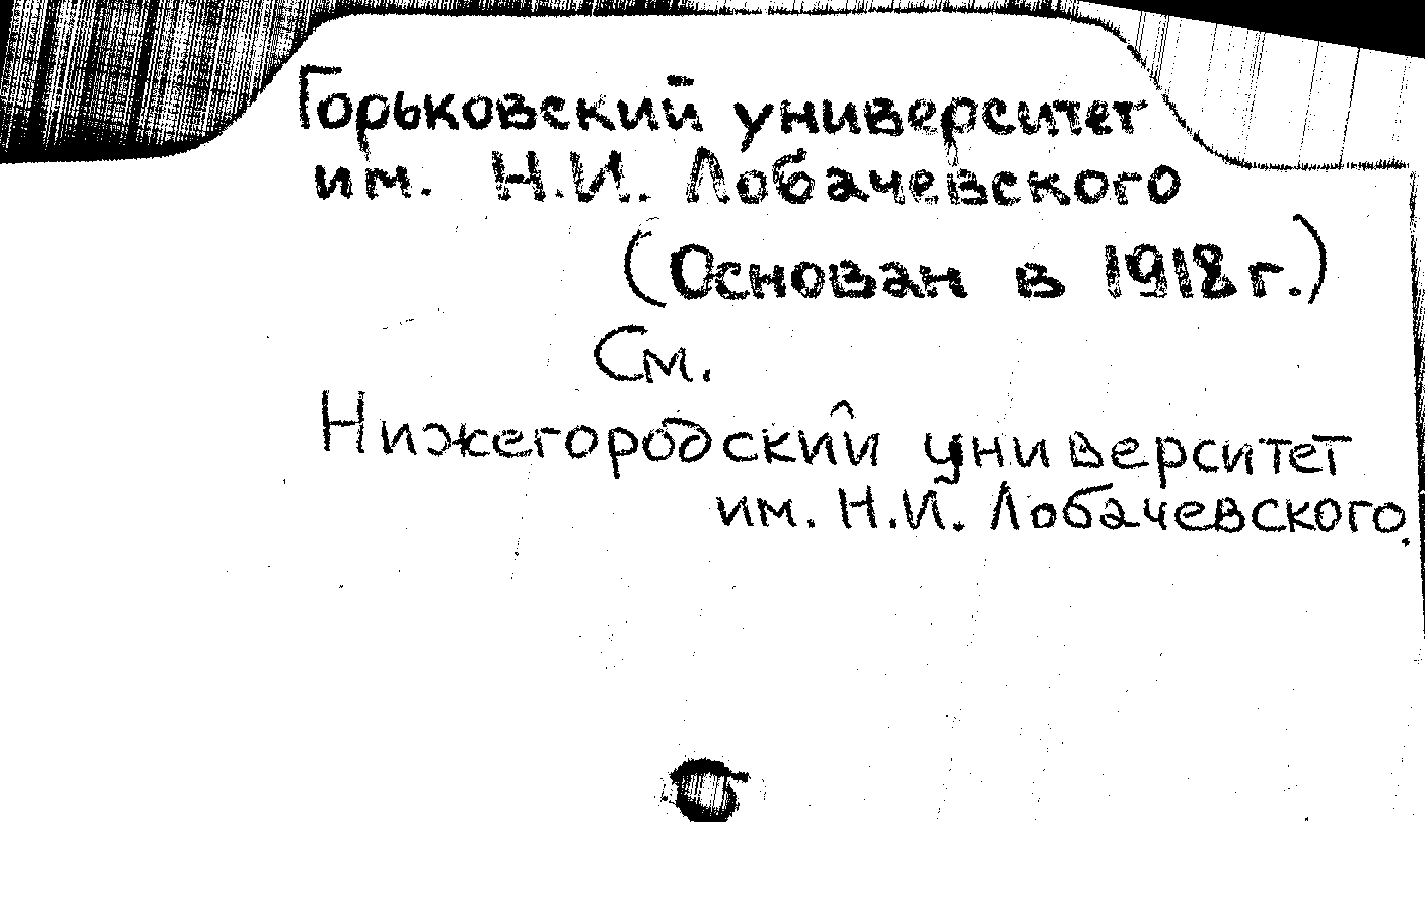 Горьковский университет
им. Н.И. Лобачевского
(Основан в 1918 г.)
См.
Нижегородский университет
им. Н.И. Лобачевского.